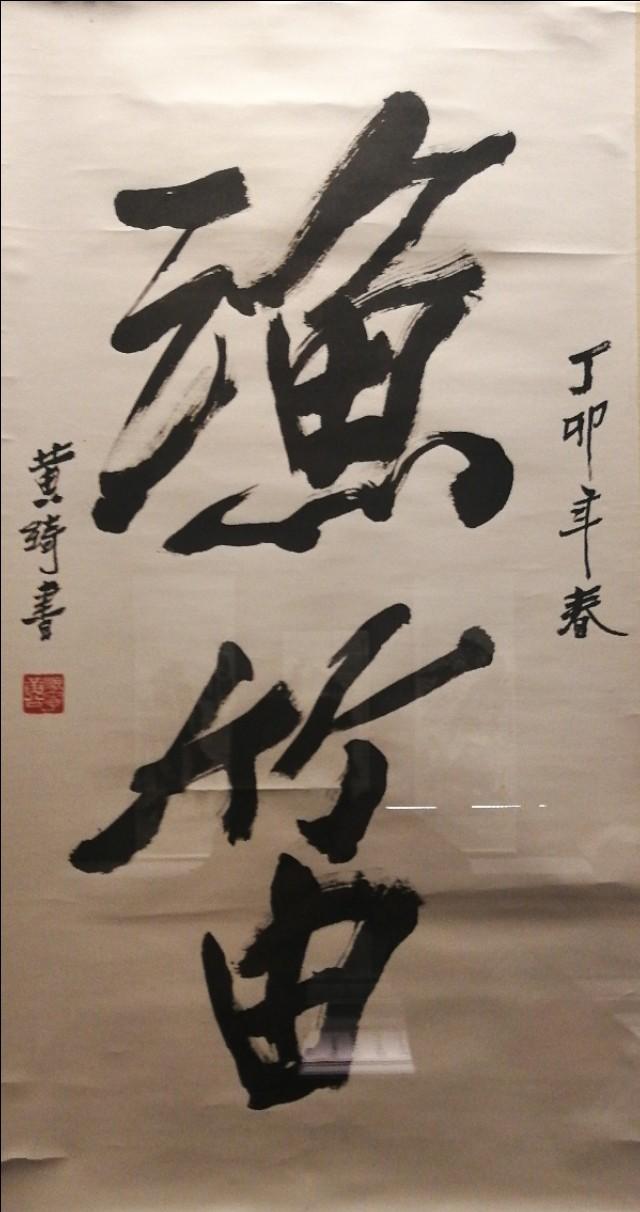 丁卯年春
漁笛
黄綺書